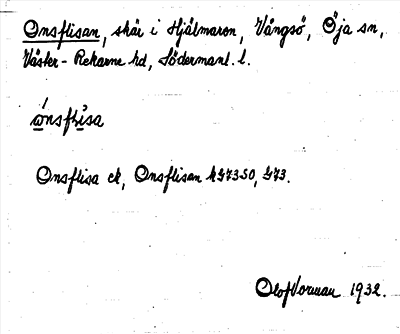 Onsflisan, skär i Hjälmaren, Vängsö, Öja sn,
Väster-Rekarne hd, Södermanl. l.
Onsflisa ek, Onsflisan
Olof Vorman 1932.